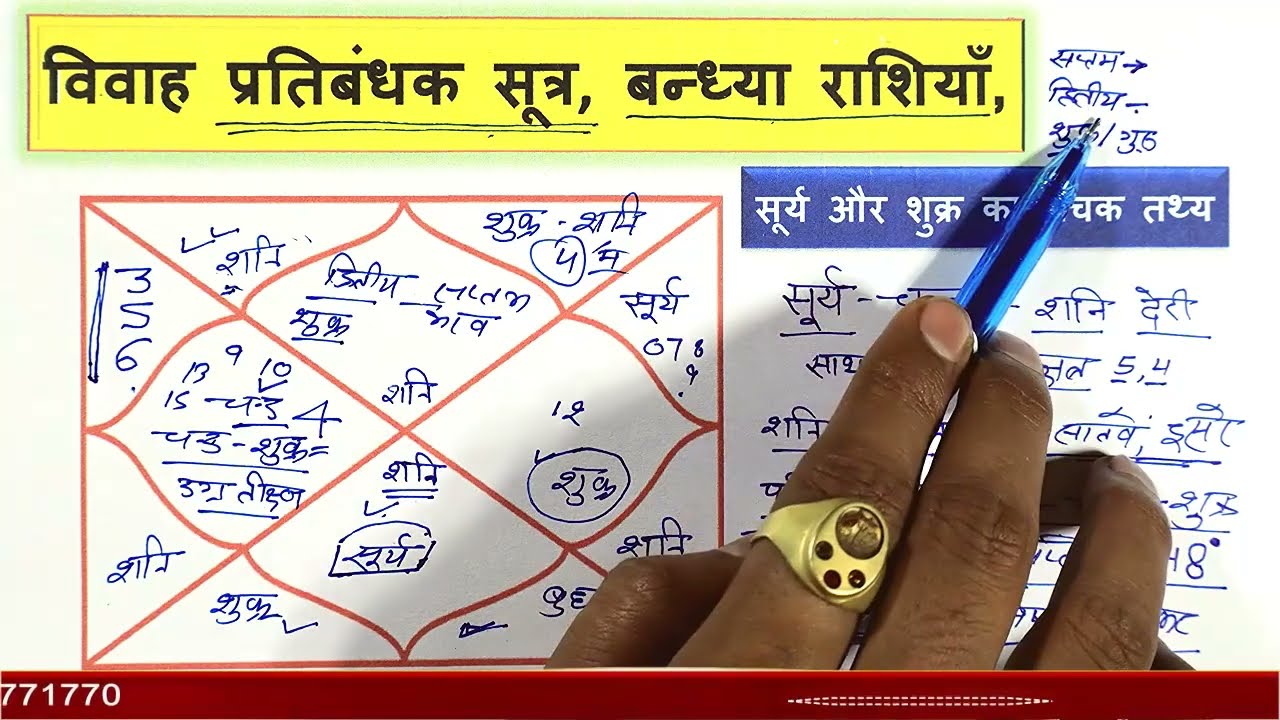 विवाह प्रतिबंधक सूत्र, बन्ध्या राशियाँ,
सप्तम →
द्वितीय -
शुक्र / गुरु
सूर्य और शुक्र का चक तथ्य
शुक्र - शनि
शनि
द्वितीय सप्तम
शुक्र भाव
सूर्य
3
5
6
07 8
9
13 9 10
15 - चन्द्र 4
चन्द्र - शुक्र =
उग्र तीक्ष्ण
शनि
12
शुक्र
शनि
सूर्य
शनि
शुक्र
शनि
सूर्य - शनि देरी
साथ 5,4
शनि सातवें, इसमें
- शुक्र
48°
771770